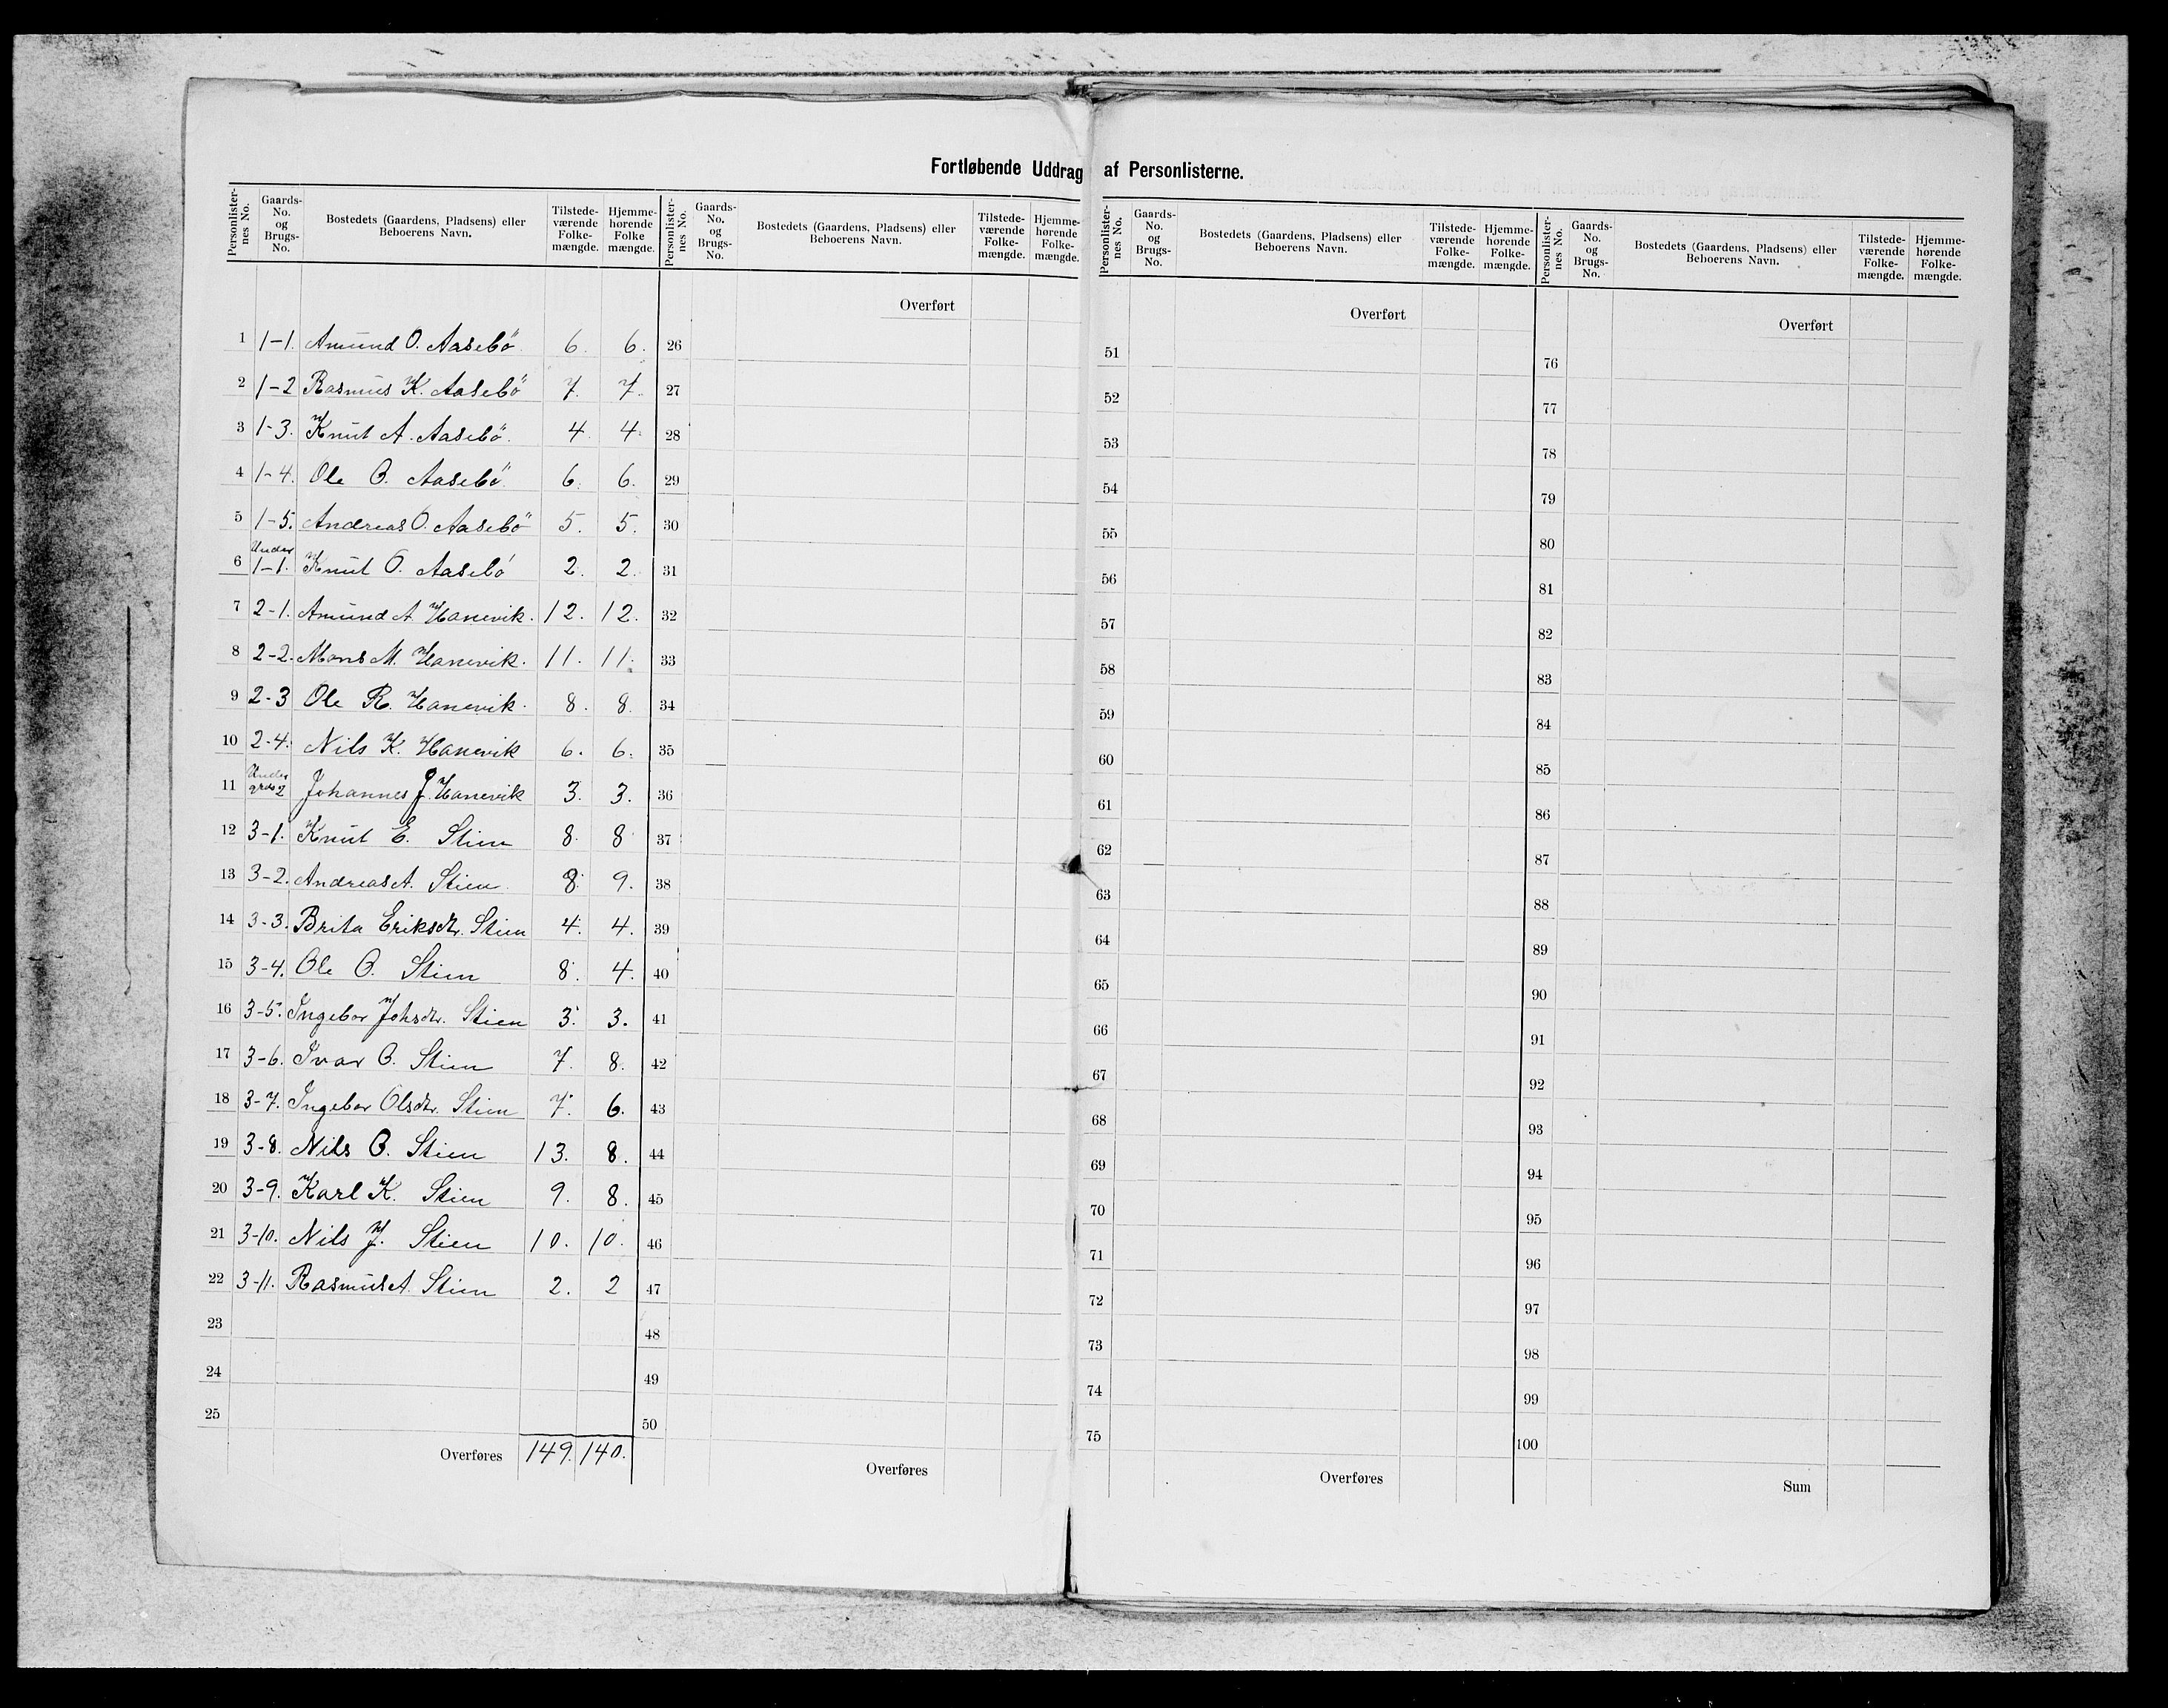 Fortløbende Uddrag af Personlisterne.
Personlister-nes No. Gaards-No. og Brugs-No. Bostedets (Gaardens, Pladsens) eller Beboerens Navn. Tilstede-værende Folke-mængde. Hjemme-hørende Folke mængde.
1 1-1. Amund O. Aasebö 6. 6.
2 1-2 Rasmus K. Aasebö 7. 7.
3 1-3. Knut A. Aasebö. 4. 4.
4 1-4. Ole O. Aasebö. 6. 6.
5 1-5. Andreas O. Aasebö 5. 5.
6 Under 1-1. Knut O. Aasebö 2. 2.
7 2-1. Amund A. Hanevik. 12. 12.
8 2-2. Mons M. Hanevik. 11. 11.
9 2-3 Ole R. Hanevik. 8. 8.
10 2-4. Nils K. Hanevik 6. 6.
11 Under 2 Johannes J. Hanevik 3. 3.
12 3-1. Knut E. Stien 8. 8
13 3-2. Andreas A. Stien. 8. 9.
14 3-3. Brita Eriksdtr. Stien 4. 4.
15 3-4. Ole O. Stien 8. 4.
16 3-5. Ingebor Johsdtr. Stien 3. 3.
17 3-6. Ivar O. Stien 7. 8.
18 3-7. Ingebor Olsdtr. Stien 7. 6.
19 3-8. Nils O. Stien 13. 8.
20 3-9. Karl K. Stien 9. 8.
21 3-10. Nils J. Stien 10. 10.
22 3-11. Rasmus A. Stien 2. 2
23
24
25
Overføres 149. 140.
Personlister-nes No. Gaards-No. og Brugs-No. Bostedets (Gaardens, Pladsens) eller Beboerens Navn. Tilstede-værende Folke-mængde. Hjemme-hørende Folke-mængde.
Overført
26
27
28
29
30
31
32
33
34
35
36
37
38
39
40
41
42
43
44
45
46
47
48
49
50
Overføres
Personlister-nes No. Gaards-No. og Brugs-No. Bostedets (Gaardens, Pladsens) eller Beboerens Navn. Tilstede-værende Folke-mængde. Hjemme-hørende Folke-mængde.
Overført
51
52
53
54
55
56
57
58
59
60
61
62
63
64
65
66
67
68
69
70
71
72
73
74
75
Overføres
Personlister-nes No. Gaards-No. og Brugs-No. Bostedets (Gaardens, Pladsens) eller Beboerens Navn. Tilstede-værende Folke-mængde. Hjemme-hørende Folke-mængde.
Overført
76
77
78
79
80
81
82
83
84
85
86
87
88
89
90
91
92
93
94
95
96
97
98
99
100
Sum